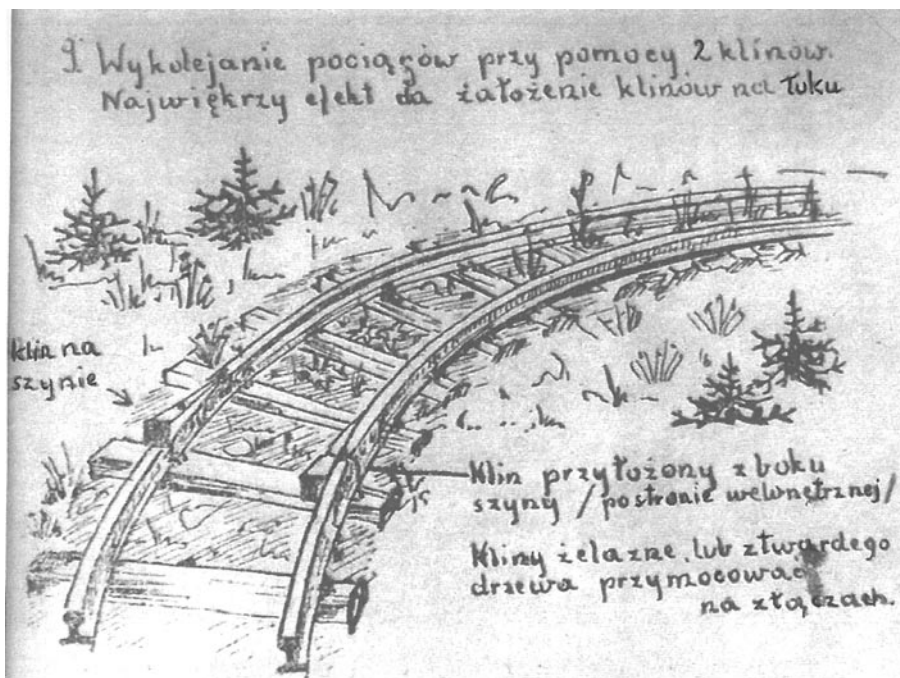 9. Wykolejanie pociągów przy pomocy 2 klinów.
Najwiękrzy efekt da żałożenie klinów na łuku
klin na
szynie
Klin przyłożony z boku
szyny /po stronie wewnętrznej/
Kliny żelazne, lub z twardego
drzewa przymocować
na złączach.